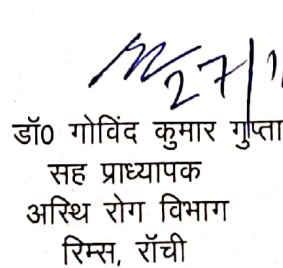 27/1
डॉ0 गोविंद कुमार गुप्ता
सह प्राध्यापक
अस्थि रोग विभाग
रिम्स, रॉची